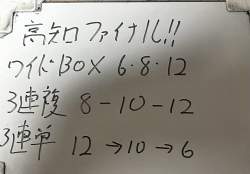 高知ファイナル!!
ワイドBOX 6・8・12
3連複 8-10-12
3連単 12→10→6